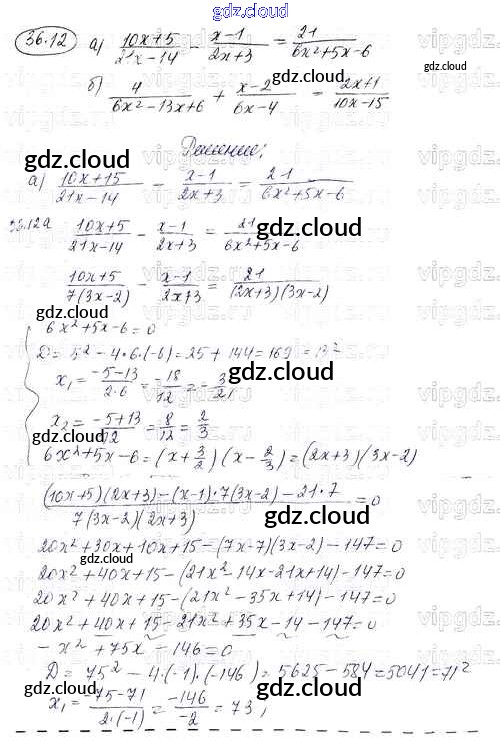 gdz.cloud
36.12 а) (10x+5)/(21x-14) - (x-1)/(2x+3) = 21/(6x²+5x-6)
б) 4/(6x²-13x+6) + (x-2)/(6x-4) = (2x+1)/(10x-15)
Решение:
а) (10x+15)/(21x-14) - (x-1)/(2x+3) = 21/(6x²+5x-6)
36.12а (10x+5)/(21x-14) - (x-1)/(2x+3) = 21/(6x²+5x-6)
(10x+5)/(7(3x-2)) - (x-1)/(2x+3) = 21/((2x+3)(3x-2))
6x²+5x-6=0
D = 5² - 4·6·(-6) = 25 + 144 = 169 = 13²
x₁ = (-5-13)/(2·6) = -18/12 = -3/2
x₂ = (-5+13)/12 = 8/12 = 2/3
6x²+5x-6 = (x+3/2)(x-2/3) = (2x+3)(3x-2)
((10x+5)(2x+3)-(x-1)·7(3x-2)-21·7)/(7(3x-2)(2x+3)) = 0
20x²+30x+10x+15-(7x-7)(3x-2)-147=0
20x²+40x+15-(21x²-14x-21x+14)-147=0
20x²+40x+15-(21x²-35x+14)-147=0
20x²+40x+15-21x²+35x-14-147=0
-x²+75x-146=0
D = 75² - 4·(-1)·(-146) = 5625-584=5041=71²
x₁ = (-75-71)/(2·(-1)) = -146/-2 = 73,